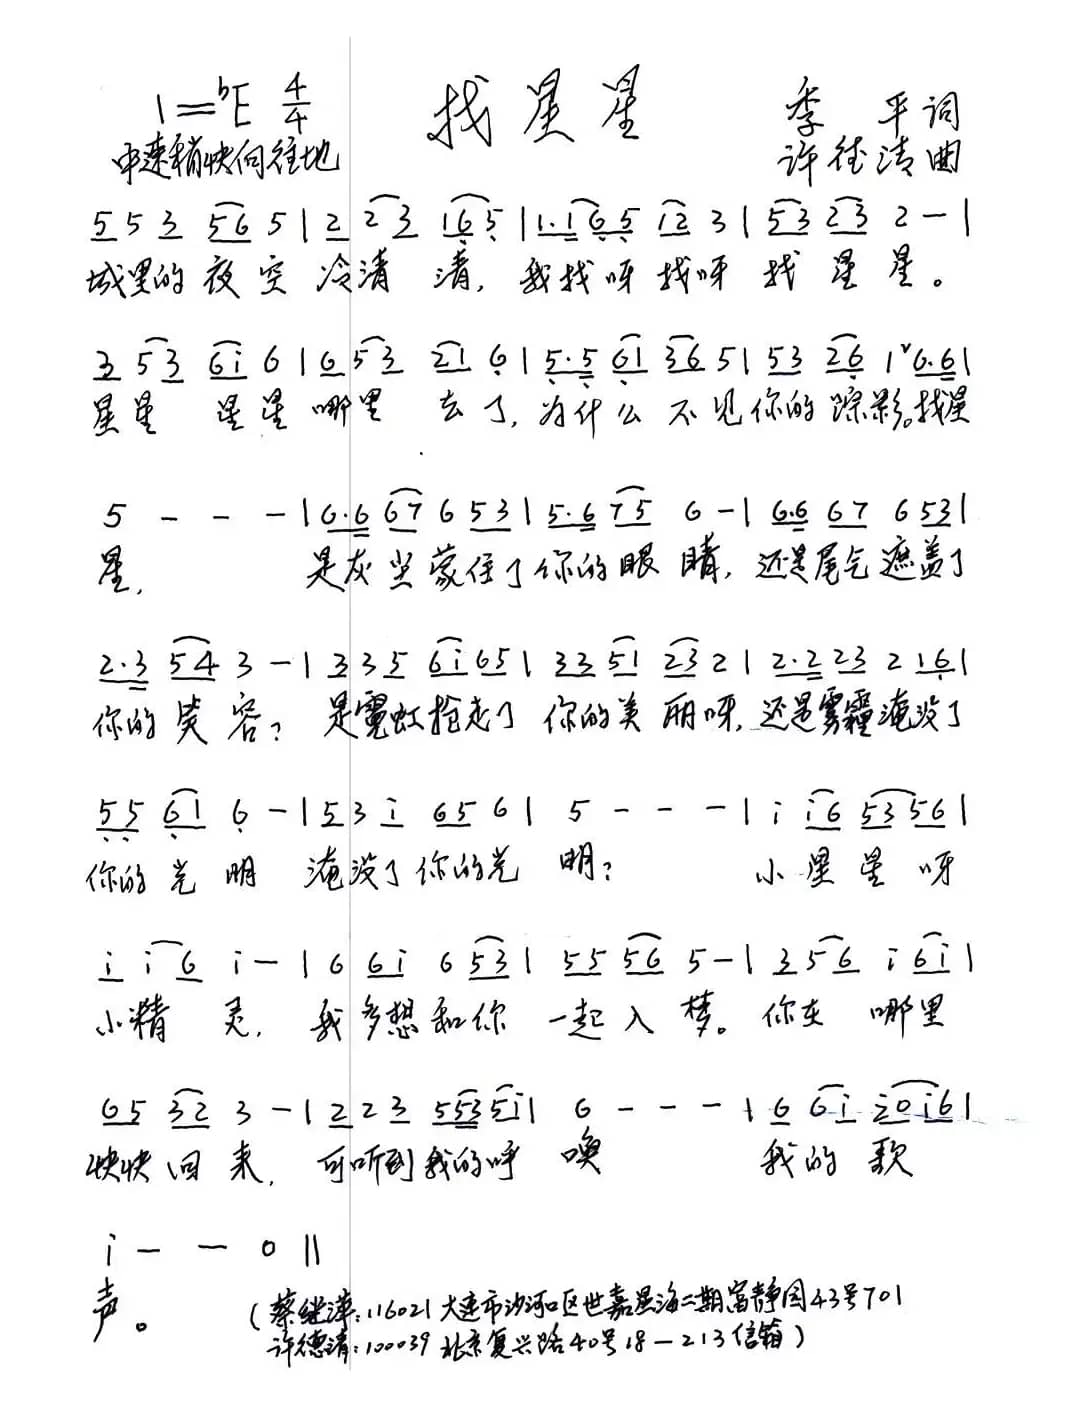 1=♭E 4/4 找星星 季 平词
中速稍快向往地 许德清曲
5 5 3 56 5 | 2 2 3 1 6 5 | 1.1 6 5 12 3 | 53 23 2 — |
城里的夜空冷清清,我找呀找呀找星星。
3 5 3 6i 6 | 6 5 3 21 6 | 5.5 61 36 5 | 53 26 1 ˅6.6 |
星星 星星哪里去了,为什么不见你的踪影。找星
5 — — — | 6.6 67 6 53 | 5.6 75 6 — | 6.6 67 6 53 |
星, 是灰尘蒙住了你的眼睛,还是尾气遮盖了
2.3 54 3 — | 3 3 5 6i 65 | 33 51 23 2 | 2.2 23 2 16 |
你的笑容?是霓虹抢走了你的美丽呀,还是雾霾淹没了
55 61 6 — | 5 3 i 65 6 | 5 — — — | i i6 53 56 |
你的光明 淹没了你的光明? 小星星呀
i i 6 i — | 6 6i 6 53 | 55 56 5 — | 3 5 6 i 6i |
小精灵,我多想和你一起入梦。你在哪里
65 32 3 — | 2 2 3 553 5i | 6 — — — | 6 6 i 2 0 i6 |
快快回来,可听到我的呼唤 我的歌
i — — 0 ‖
声。
(蔡继萍:116021大连市沙河口区世嘉星海二期富静园43号701
许德清:100039北京复兴路40号18—213信箱)